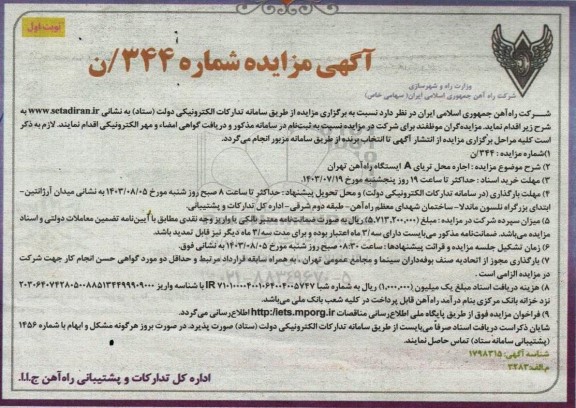 نوبت اول
آگهی مزایده شماره ۳۴۴/ن
وزارت راه و شهرسازی
شرکت راه آهن جمهوری اسلامی ایران (سهامی خاص)
شرکت راه‌آهن جمهوری اسلامی ایران در نظر دارد نسبت به برگزاری مزایده از طریق سامانه تدارکات الکترونیکی دولت (ستاد) به نشانی www.setadiran.ir به
شرح زیر اقدام نماید. مزایده‌گران موظفند برای شرکت در مزایده نسبت به ثبت‌نام در سامانه مذکور و دریافت گواهی امضاء و مهر الکترونیکی اقدام نمایند. لازم به ذکر
است کلیه مراحل برگزاری مزایده از انتشار آگهی تا انتخاب برنده از طریق سامانه مزبور انجام می‌گردد.
۱) شماره مزایده: ۳۴۴/ن
۲) شرح موضوع مزایده: اجاره محل تریای A ایستگاه راه‌آهن تهران
۳) مهلت خرید اسناد: حداکثر تا ساعت ۱۹ روز پنجشنبه مورخ ۱۴۰۳/۰۷/۱۹
۴) مهلت بارگذاری (در سامانه تدارکات الکترونیکی دولت) و محل تحویل پیشنهاد: حداکثر تا ساعت ۸ صبح روز شنبه مورخ ۱۴۰۳/۰۸/۰۵ به نشانی میدان آرژانتین-
ابتدای بزرگراه نلسون ماندلا- ساختمان شهدای معظم راه‌آهن- طبقه دوم شرقی- اداره کل تدارکات و پشتیبانی.
۵) میزان سپرده شرکت در مزایده: مبلغ (۵.۷۱۳.۲۰۰.۰۰۰) ریال به صورت ضمانت‌نامه معتبر بانکی یا واریز وجه نقدی مطابق با آیین‌نامه تضمین معاملات دولتی و اسناد
مزایده می‌باشد. ضمانت‌نامه مذکور می‌بایست دارای سه/۳ ماه اعتبار بوده و برای مدت سه/۳ ماه دیگر نیز قابل تمدید باشد.
۶) زمان تشکیل جلسه مزایده و قرائت پیشنهادها: ساعت ۰۸:۳۰ صبح روز شنبه مورخ ۱۴۰۳/۰۸/۰۵ به نشانی فوق.
۷) بارگذاری مجوز از اتحادیه صنف بوفه‌داران سینما و مجامع عمومی تهران، به همراه سابقه قرارداد مرتبط و حداقل دو مورد گواهی حسن انجام کار جهت شرکت
در مزایده الزامی است.
۸) هزینه دریافت اسناد مبلغ یک میلیون (۱.۰۰۰.۰۰۰) ریال به شماره شبا IR با شناسه واریز
نزد خزانه بانک مرکزی بنام درآمد راه‌آهن قابل پرداخت در کلیه شعب بانک ملی می‌باشد.
۹) فراخوان مزایده فوق از طریق پایگاه ملی اطلاع‌رسانی مناقصات http://iets.mporg.ir اطلاع‌رسانی می‌گردد.
شایان ذکر است دریافت اسناد صرفاً می‌بایست از طریق سامانه تدارکات الکترونیکی دولت (ستاد) صورت پذیرد. در صورت بروز هرگونه مشکل و ابهام با شماره ۱۴۵۶
(پشتیبانی سامانه ستاد) تماس حاصل نمایند.
شناسه آگهی: ۱۷۹۸۳۱۵
م الف: ۲۲۸۳
اداره کل تدارکات و پشتیبانی راه‌آهن ج.ا.ا.